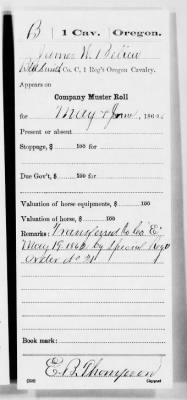 B | 1 Cav. | Oregon.
James W.
Co. C, 1 Reg't Oregon Cavalry.
Appears on
Company Muster Roll
for May & June, 186
Present or absent
Stoppage, $ 100 for
Due Gov't, $ 100 for
Valuation of horse equipments, $ 100
Valuation of horse, $ 100
Remarks: Transferred to Co. "E"
May 19. 186 by Special Regt
Order No.
Book mark:
E. B. Thompson
(358) Copyist.